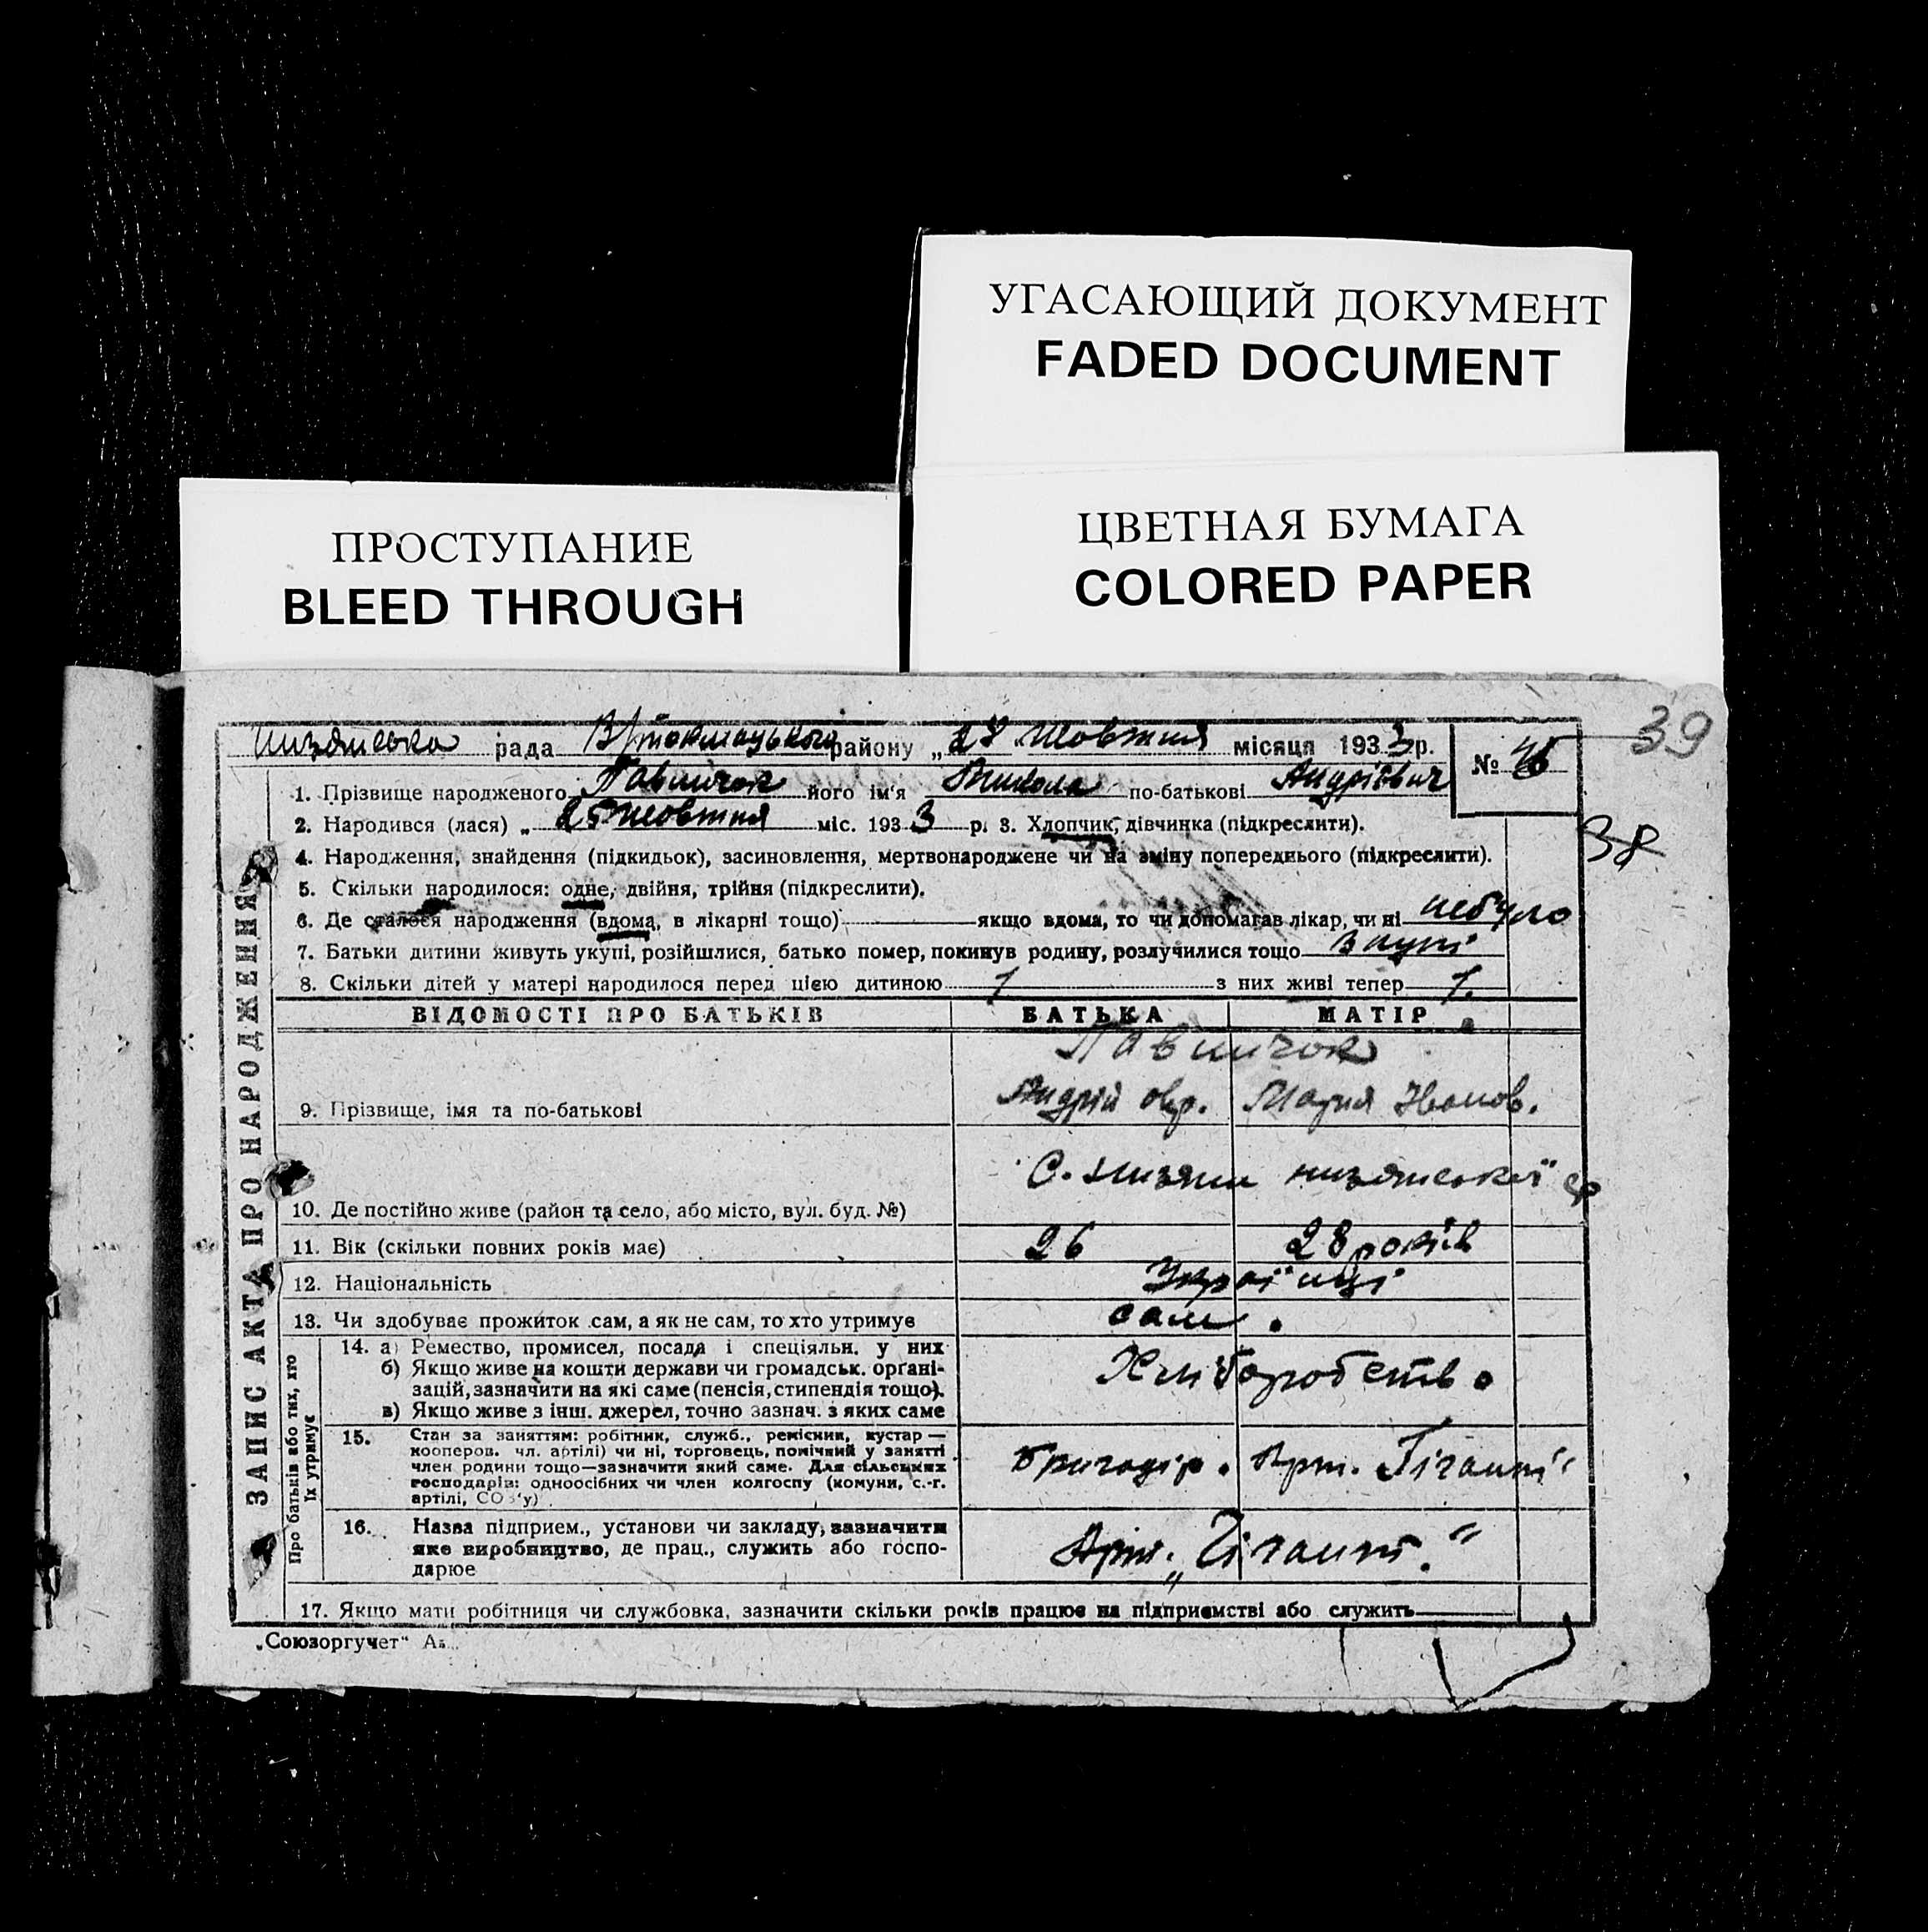 УГАСАЮЩИЙ ДОКУМЕНТ
FADED DOCUMENT
ЦВЕТНАЯ БУМАГА
COLORED PAPER
ПРОСТУПАНИЕ
BLEED THROUGH
39
рада В/токмацького району „27 Жовтня місяця 1933 р.
№ 46
1. Прізвище народженого його ім'я Микола по-батькові Андрієвич
2. Народився (лася) „ 25 Жовтня міс. 1933 р. 3. Хлопчик, дівчинка (підкреслити).
38
4. Народження, знайдення (підкидьок), засиновлення, мертвонароджене чи на зміну попереднього (підкреслити).
5. Скільки народилося: одне, двійня, трійня (підкреслити).
6. Де сталося народження (вдома, в лікарні тощо) якщо вдома, то чи допомагав лікар, чи ні небуло
7. Батьки дитини живуть укупі, розійшлися, батько помер, покинув родину, розлучилися тощо вкупі
8. Скільки дітей у матері народилося перед цією дитиною 1 з них живі тепер 1.
ЗАПИС АКТА ПРО НАРОДЖЕННЯ
ВІДОМОСТІ ПРО БАТЬКІВ БАТЬКА МАТІР
9. Прізвище, імя та по-батькові Андрій Мария Іванов.
10. Де постійно живе (район та село, або місто, вул. буд. №) С.
11. Вік (скільки повних років має) 26 28 років
12. Національність Українці
13. Чи здобуває прожиток сам, а як не сам, то хто утримує сам.
Про батьків або тих, хто
їх утримує
14. а) Ремество, промисел, посада і спеціяльн. у них
б) Якщо живе на кошти держави чи громадськ. орґані-
зацій, зазначити на які саме (пенсія, стипендія тощо).
в) Якщо живе з інш. джерел, точно зазнач. з яких саме
Хліборобство
15. Стан за заняттям: робітник, служб., ремісник, кустар —
кооперов. чл. артілі) чи ні, торговець, помічний у занятті
член родини тощо—зазначити який саме. Для сільських
господарів: одноосібних чи член колгоспу (комуни, с.-г.
артілі, СОЗ'у)
Бригадір. Арт. Гігант"
16. Назва підприєм., установи чи закладу, зазначити
яке виробництво, де прац., служить або госпо-
дарює
Арт. „Гігант."
17. Якщо мати робітниця чи службовка, зазначити скільки років працює на підприємстві або служить
„Союзоргучет"